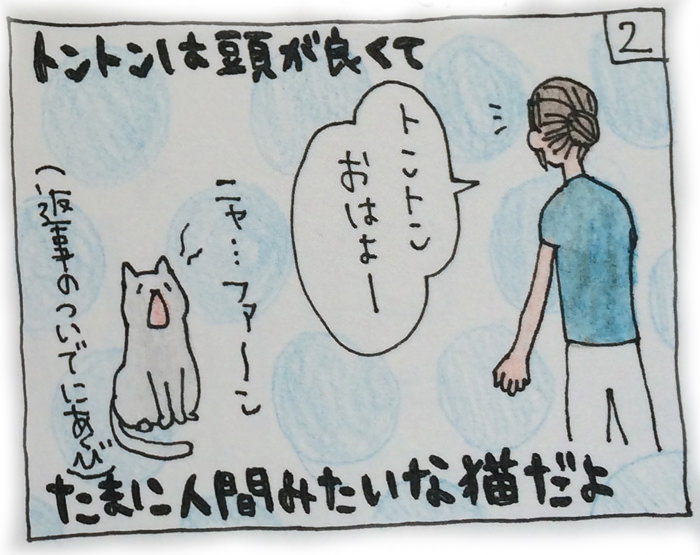 2
トントンは頭が良くて
トントン
おはよー
ニャ…ファ〜ン
(返事のついでにあくび)
たまに人間みたいな猫だよ